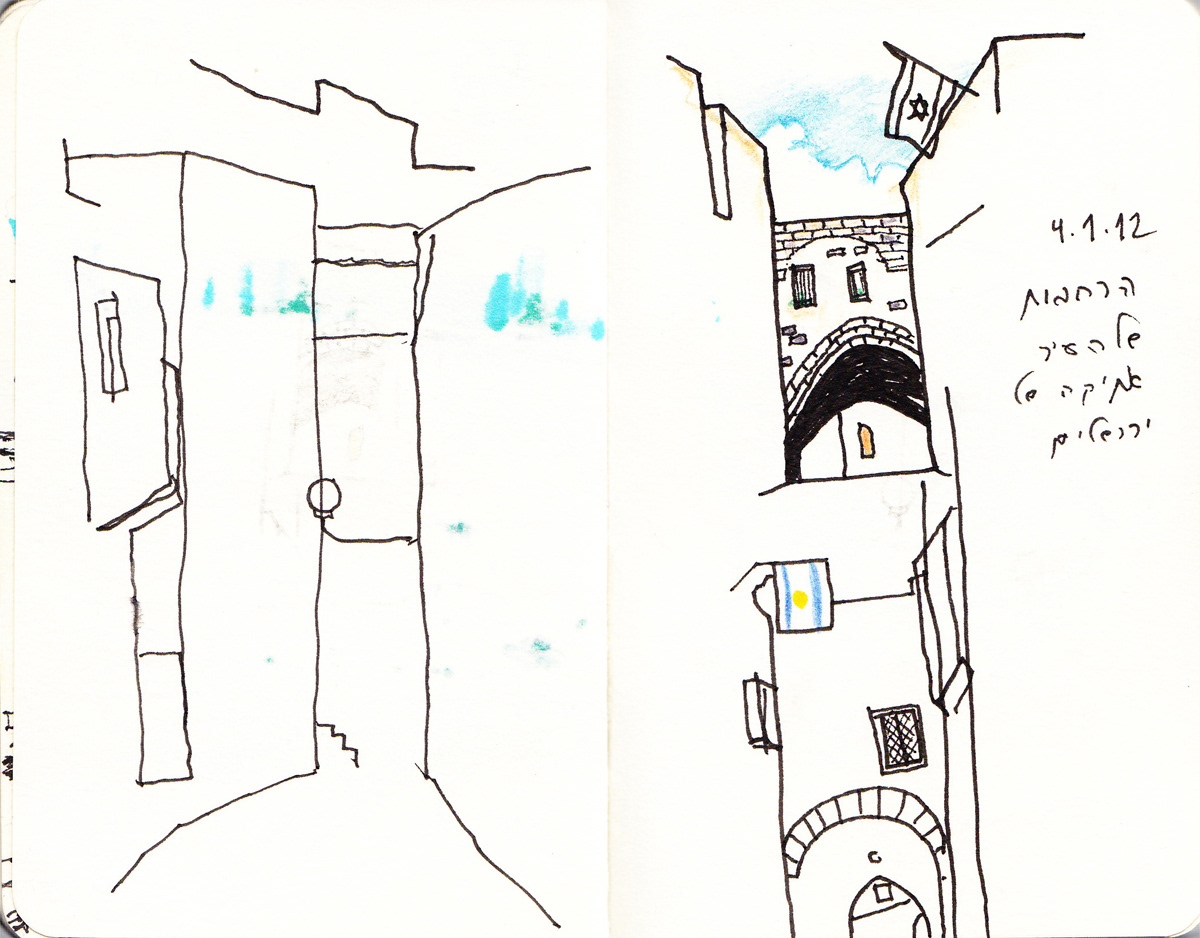 4.1.12
הרחבות
של העיר
אתיקה של
ירושלים